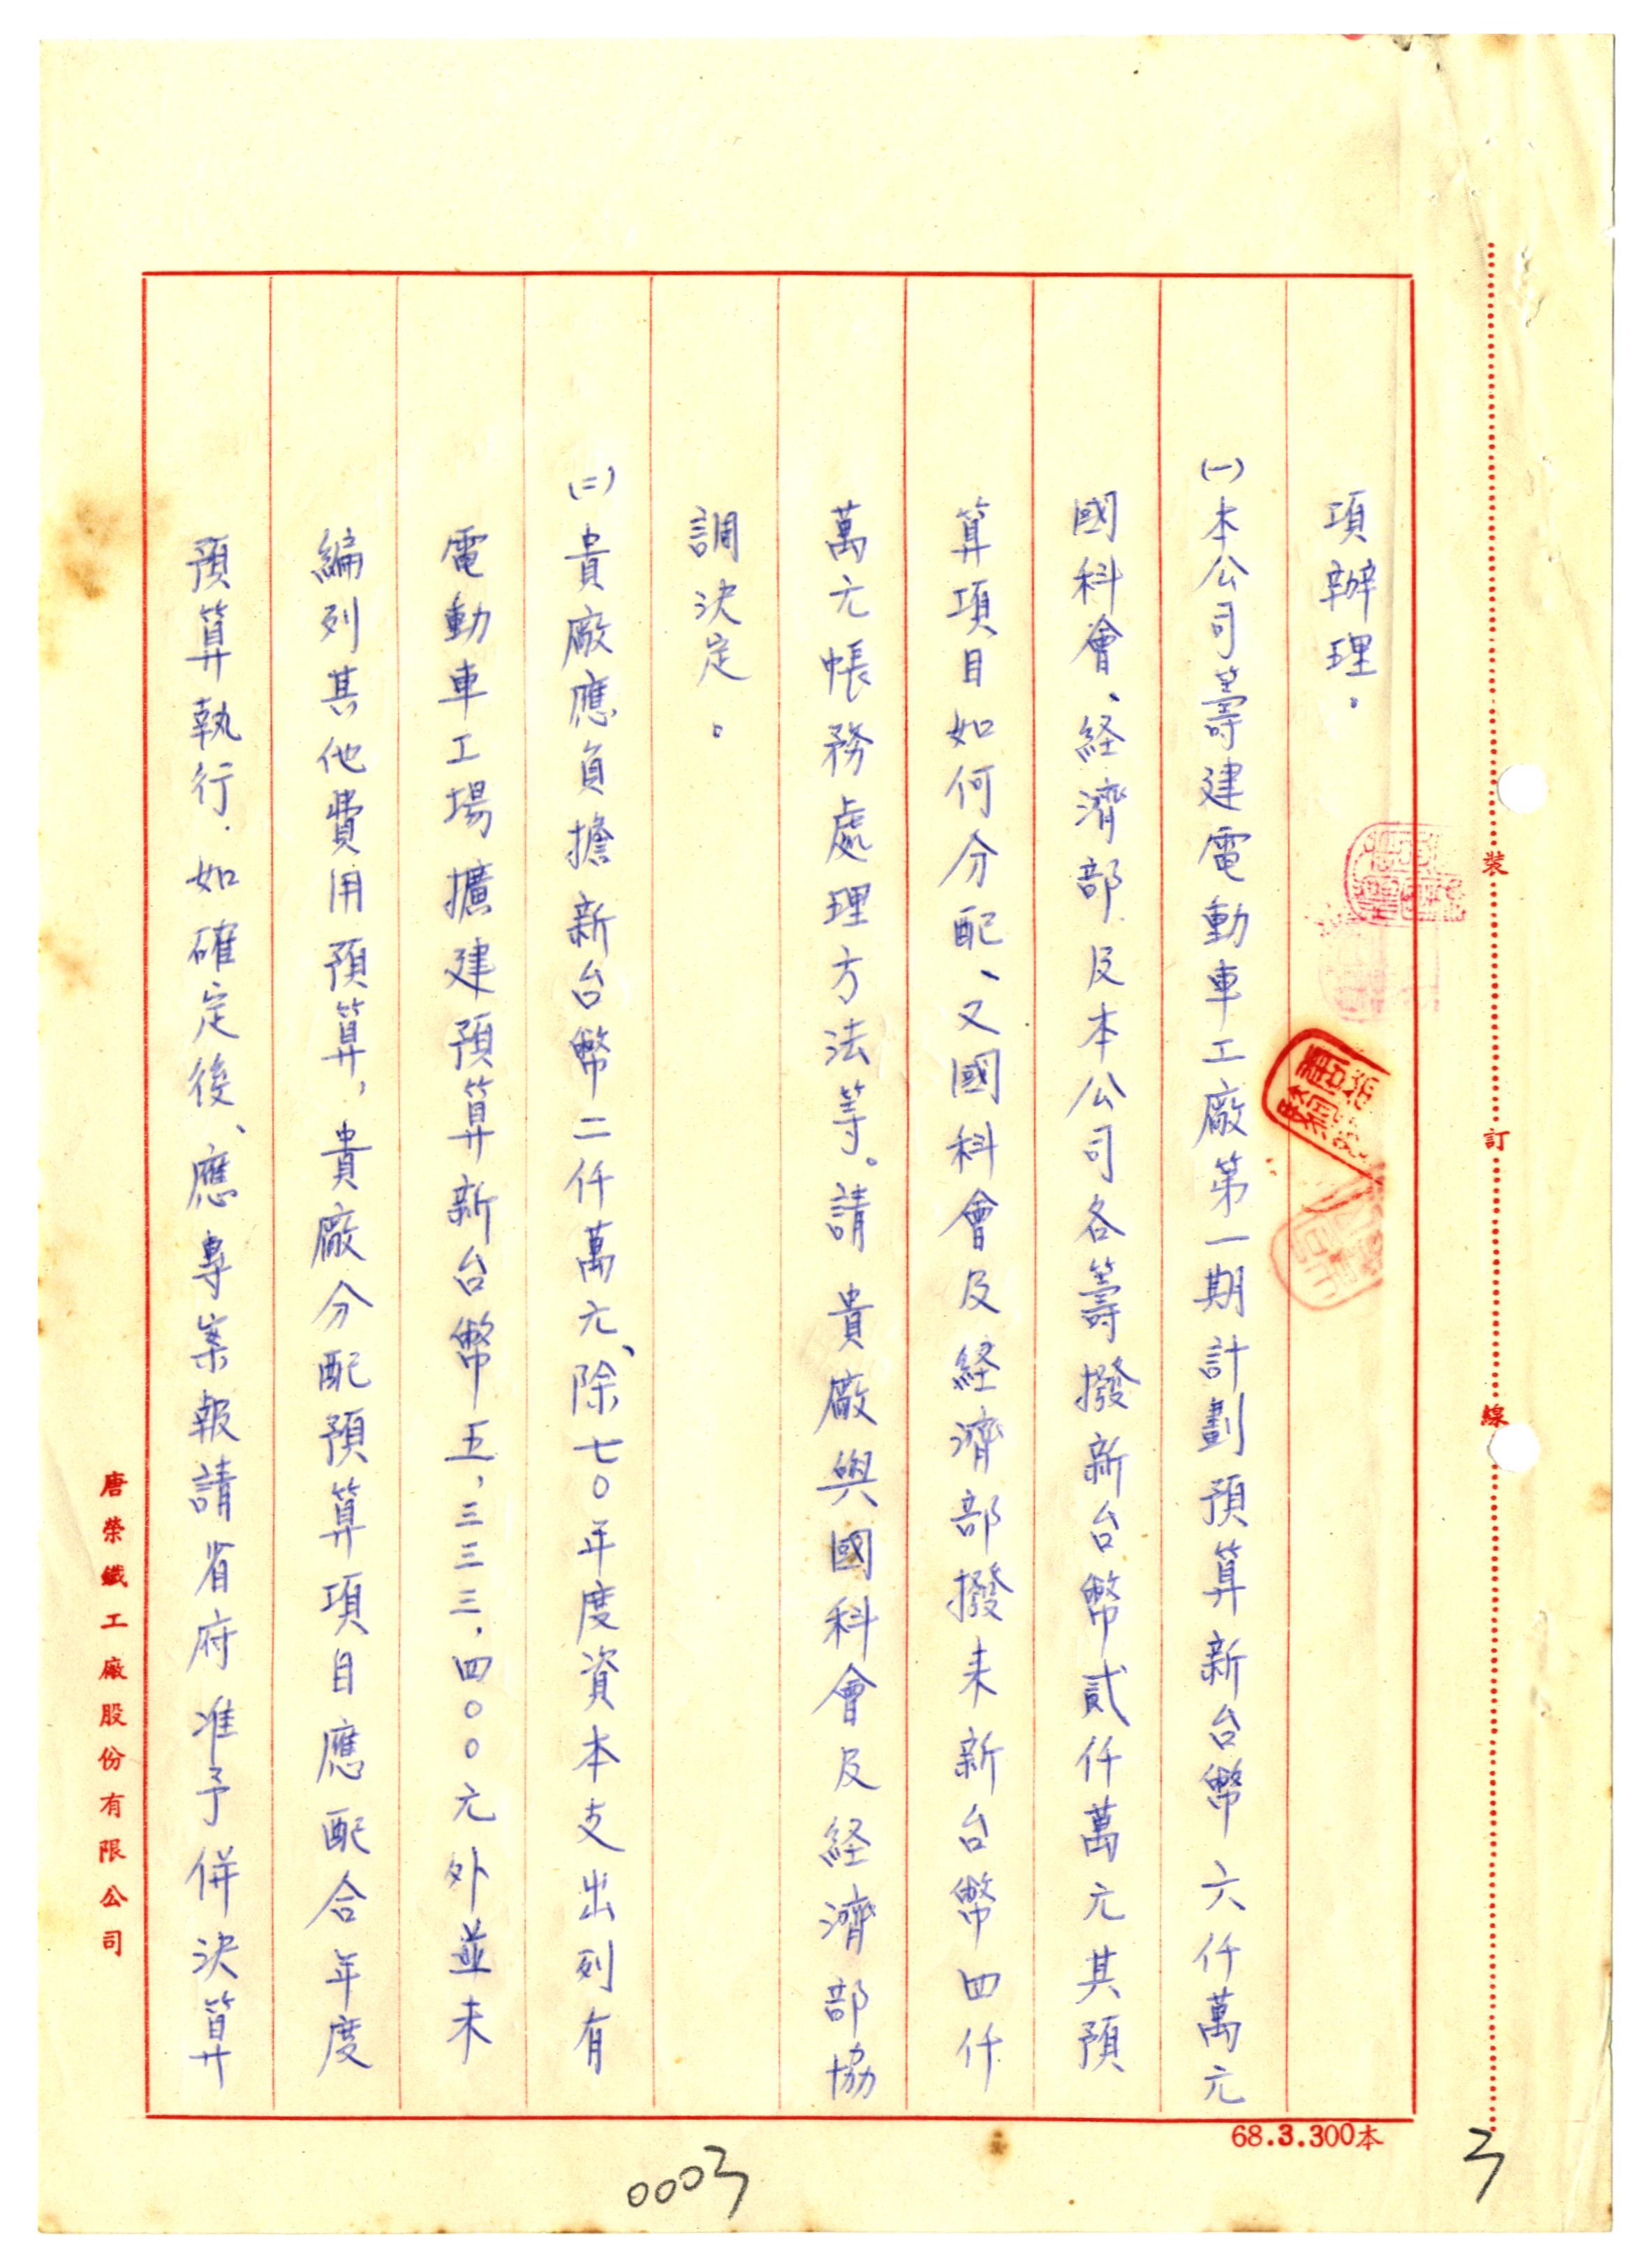 項辦理。
㈠本公司籌建電動車工廠第一期計劃預算新台幣六仟萬元
國科會、経濟部及本公司各籌撥新台幣貳仟萬元其預
算項目如何分配、又國科會及経濟部撥来新台幣四仟
萬元帳務處理方法等。請 貴廠與國科會及経濟部協
調決定。
㈡貴廠應負擔新台幣二仟萬元、除七〇年度資本支出列有
電動車工場擴建預算新台幣五，三三三，四〇〇元外並未
編列其他費用預算，貴廠分配預算項目應配合年度
預算執行．如確定後、應專案報請省府准予併決算
唐榮鐵工廠股份有限公司
裝
訂
線
68.3.300本
0003
3